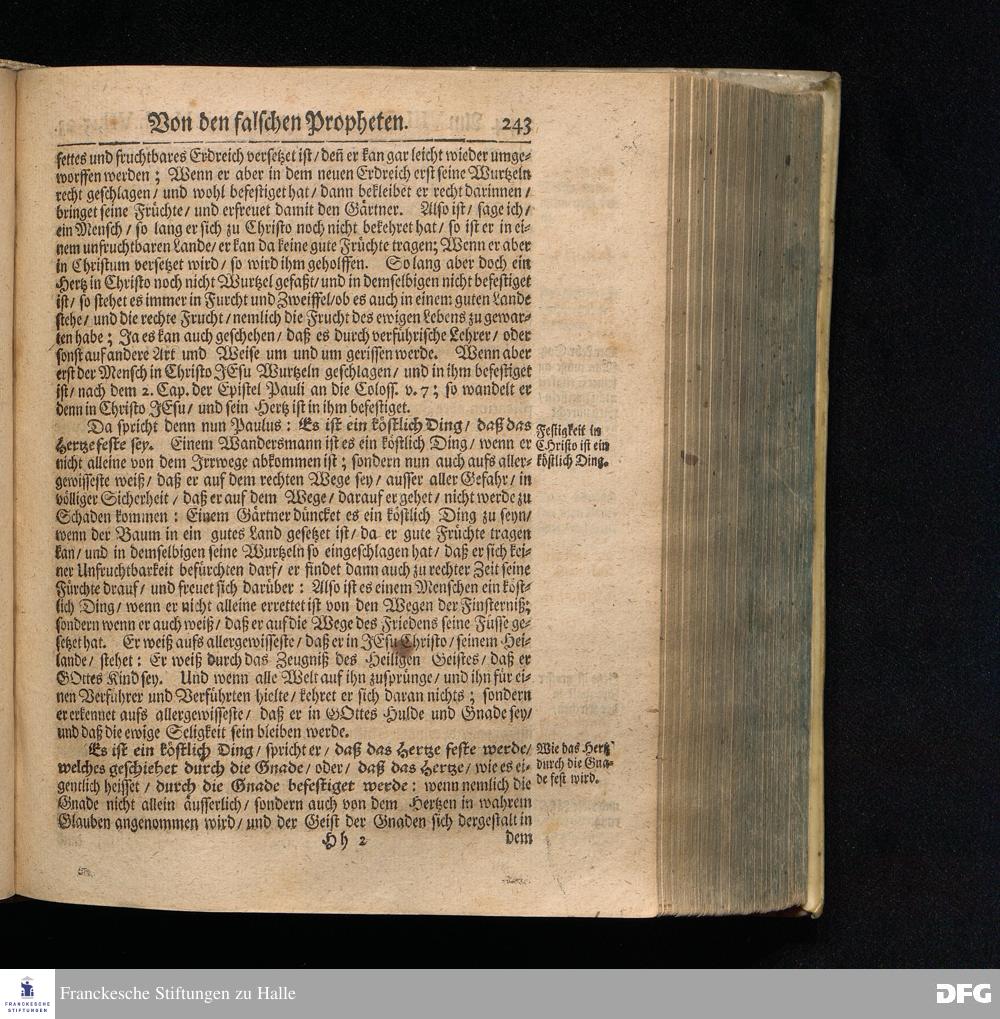 Von den falschen Propheten. 243
fettes und fruchtbares Erdreich versetzet ist/ deñ er kan gar leicht wieder umge-
worffen werden; Wenn er aber in dem neuen Erdreich erst seine Wurtzeln
recht geschlagen/ und wohl befestiget hat/ dann bekleibet er recht darinnen/
bringet seine Früchte/ und erfreuet damit den Gärtner. Also ist/ sage ich/
ein Mensch/ so lang er sich zu Christo noch nicht bekehret hat/ so ist er in ei-
nem unfruchtbaren Lande/ er kan da keine gute Früchte tragen; Wenn er aber
in Christum versetzet wird/ so wird ihm geholffen. So lang aber doch ein
Hertz in Christo noch nicht Wurtzel gefaßt/ und in demselbigen nicht befestiget
ist/ so stehet es immer in Furcht und Zweiffel/ ob es auch in einem guten Lande
stehe/ und die rechte Frucht/ nemlich die Frucht des ewigen Lebens zu gewar-
ten habe; Ja es kan auch geschehen/ daß es durch verführische Lehrer/ oder
sonst auf andere Art und Weise um und um gerissen werde. Wenn aber
erst der Mensch in Christo JEsu Wurtzeln geschlagen/ und in ihm befestiget
ist/ nach dem 2. Cap. der Epistel Pauli an die Coloss. v. 7; so wandelt er
denn in Christo JEsu/ und sein Hertz ist in ihm befestiget.
Da spricht denn nun Paulus: Es ist ein köstlich Ding/ daß das
Hertze feste sey. Einem Wandersmann ist es ein köstlich Ding/ wenn er
nicht alleine von dem Irrwege abkommen ist; sondern nun auch aufs aller-
gewisseste weiß/ daß er auf dem rechten Wege sey/ ausser aller Gefahr/ in
völliger Sicherheit/ daß er auf dem Wege/ darauf er gehet/ nicht werde zu
Schaden kommen: Einem Gärtner düncket es ein köstlich Ding zu seyn/
wenn der Baum in ein gutes Land gesetzet ist/ da er gute Früchte tragen
kan/ und in demselbigen seine Wurtzeln so eingeschlagen hat/ daß er sich kei-
ner Unfruchtbarkeit befürchten darf/ er findet dann auch zu rechter Zeit seine
Fürchte drauf/ und freuet sich darüber: Also ist es einem Menschen ein köst-
lich Ding/ wenn er nicht alleine errettet ist von den Wegen der Finsterniß;
sondern wenn er auch weiß/ daß er auf die Wege des Friedens seine Füsse ge-
setzet hat. Er weiß aufs allergewisseste/ daß er in JEsu Christo/ seinem Hei-
lande/ stehet: Er weiß durch das Zeugniß des Heiligen Geistes/ daß er
GOttes Kind sey. Und wenn alle Welt auf ihn zusprünge/ und ihn für ei-
nen Verführer und Verführten hielte/ kehret er sich daran nichts; sondern
er erkennet aufs allergewisseste/ daß er in GOttes Hulde und Gnade sey/
und daß die ewige Seligkeit sein bleiben werde.
Es ist ein köstlich Ding/ spricht er/ daß das Hertze feste werde/
welches geschiehet durch die Gnade/ oder/ daß das Hertze/ wie es ei-
gentlich heisset/ durch die Gnade befestiget werde: wenn nemlich die
Gnade nicht allein äusserlich/ sondern auch von dem Hertzen in wahrem
Glauben angenommen wird/ und der Geist der Gnaden sich dergestalt in
Hh 2 dem
Festigkeit in
CHristo ist ein
köstlich Ding.
Wie das Hertz
durch die Gna-
de fest wird.
FRANCKESCHE
STIFTUNGEN
Franckesche Stiftungen zu Halle
DFG